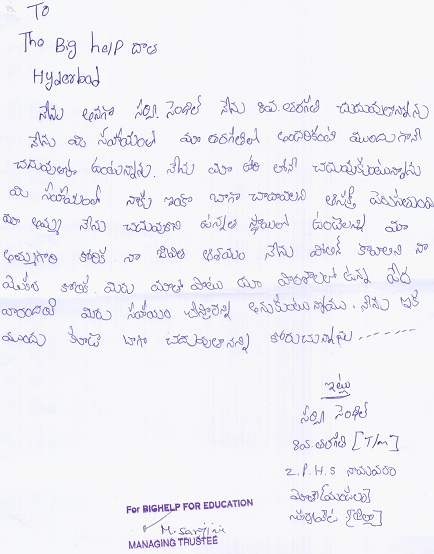 To
The Big help దాత
Hyderbad
నేను అనగా సర్వి. సెంథిల్ నేను 8వ. తరగతి చదువుతున్నాను
నేను మీ సహాయంతో మా తరగతిలో అందరికంటే ముందుగానే
చదువుతూ ఉంటున్నాను. నేను మా లోనే చదువుకుంటున్నాను
మీ సహాయంతో నాకు ఇంకా బాగా చదవాలని ఆసక్తి పెరుగుతుంది
మా అమ్మ నేను చదువుకుని ఉన్నత స్థాయిలో ఉండాలన్నది మా
అమ్మగారి కోరిక. నా జీవిత ఆశయం. నేను పోలీస్ కావాలని నా
యొక్క కోరిక. మీరు మాతో పాటు మా పాఠశాలలో ఉన్న పేద
వారందరికీ మీరు సహాయం చేస్తారని అనుకుంటున్నాము. నేను ఇక
ముందు కూడా బాగా చదువుతానని కోరుచున్నాను
ఇట్లు
సర్వి సెంథిల్
8వ.తరగతి [T/m]
Z.P.H.S నాయవరం
[మండలం]
సూర్యాపేట [జిల్లా]
For BIGHELP FOR EDUCATION
M. Sarojini
MANAGING TRUSTEE